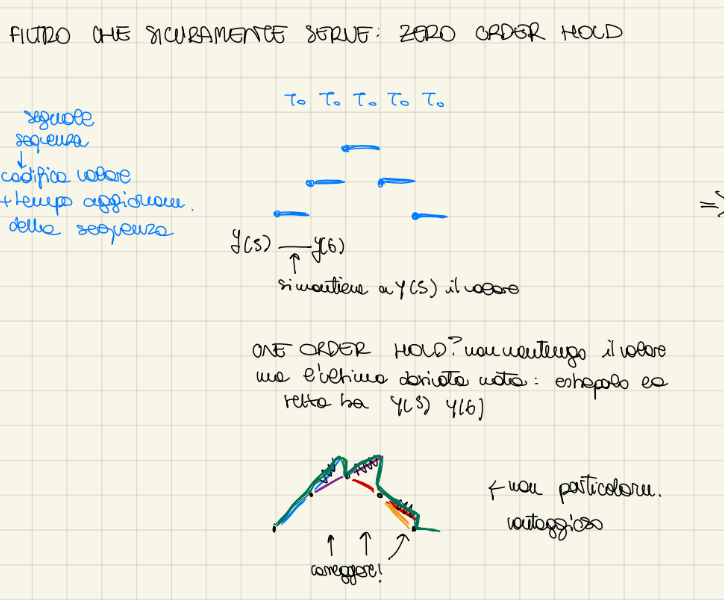 FILTRO CHE SICURAMENTE SERVE: ZERO ORDER HOLD
T₀ T₀ T₀ T₀ T₀
segnale
sequenza
↓
codifica valore
+ tempo aggiornam.
della sequenza
=>
y(5) — y(6)
↑
si mantiene a y(5) il valore
ONE ORDER HOLD? non mantengo il valore
ma l'ultima derivata nota: estrapolo la
retta tra y(5) y(6)
← non particolarm.
vantaggioso
↑ ↑ ↗
correggere!